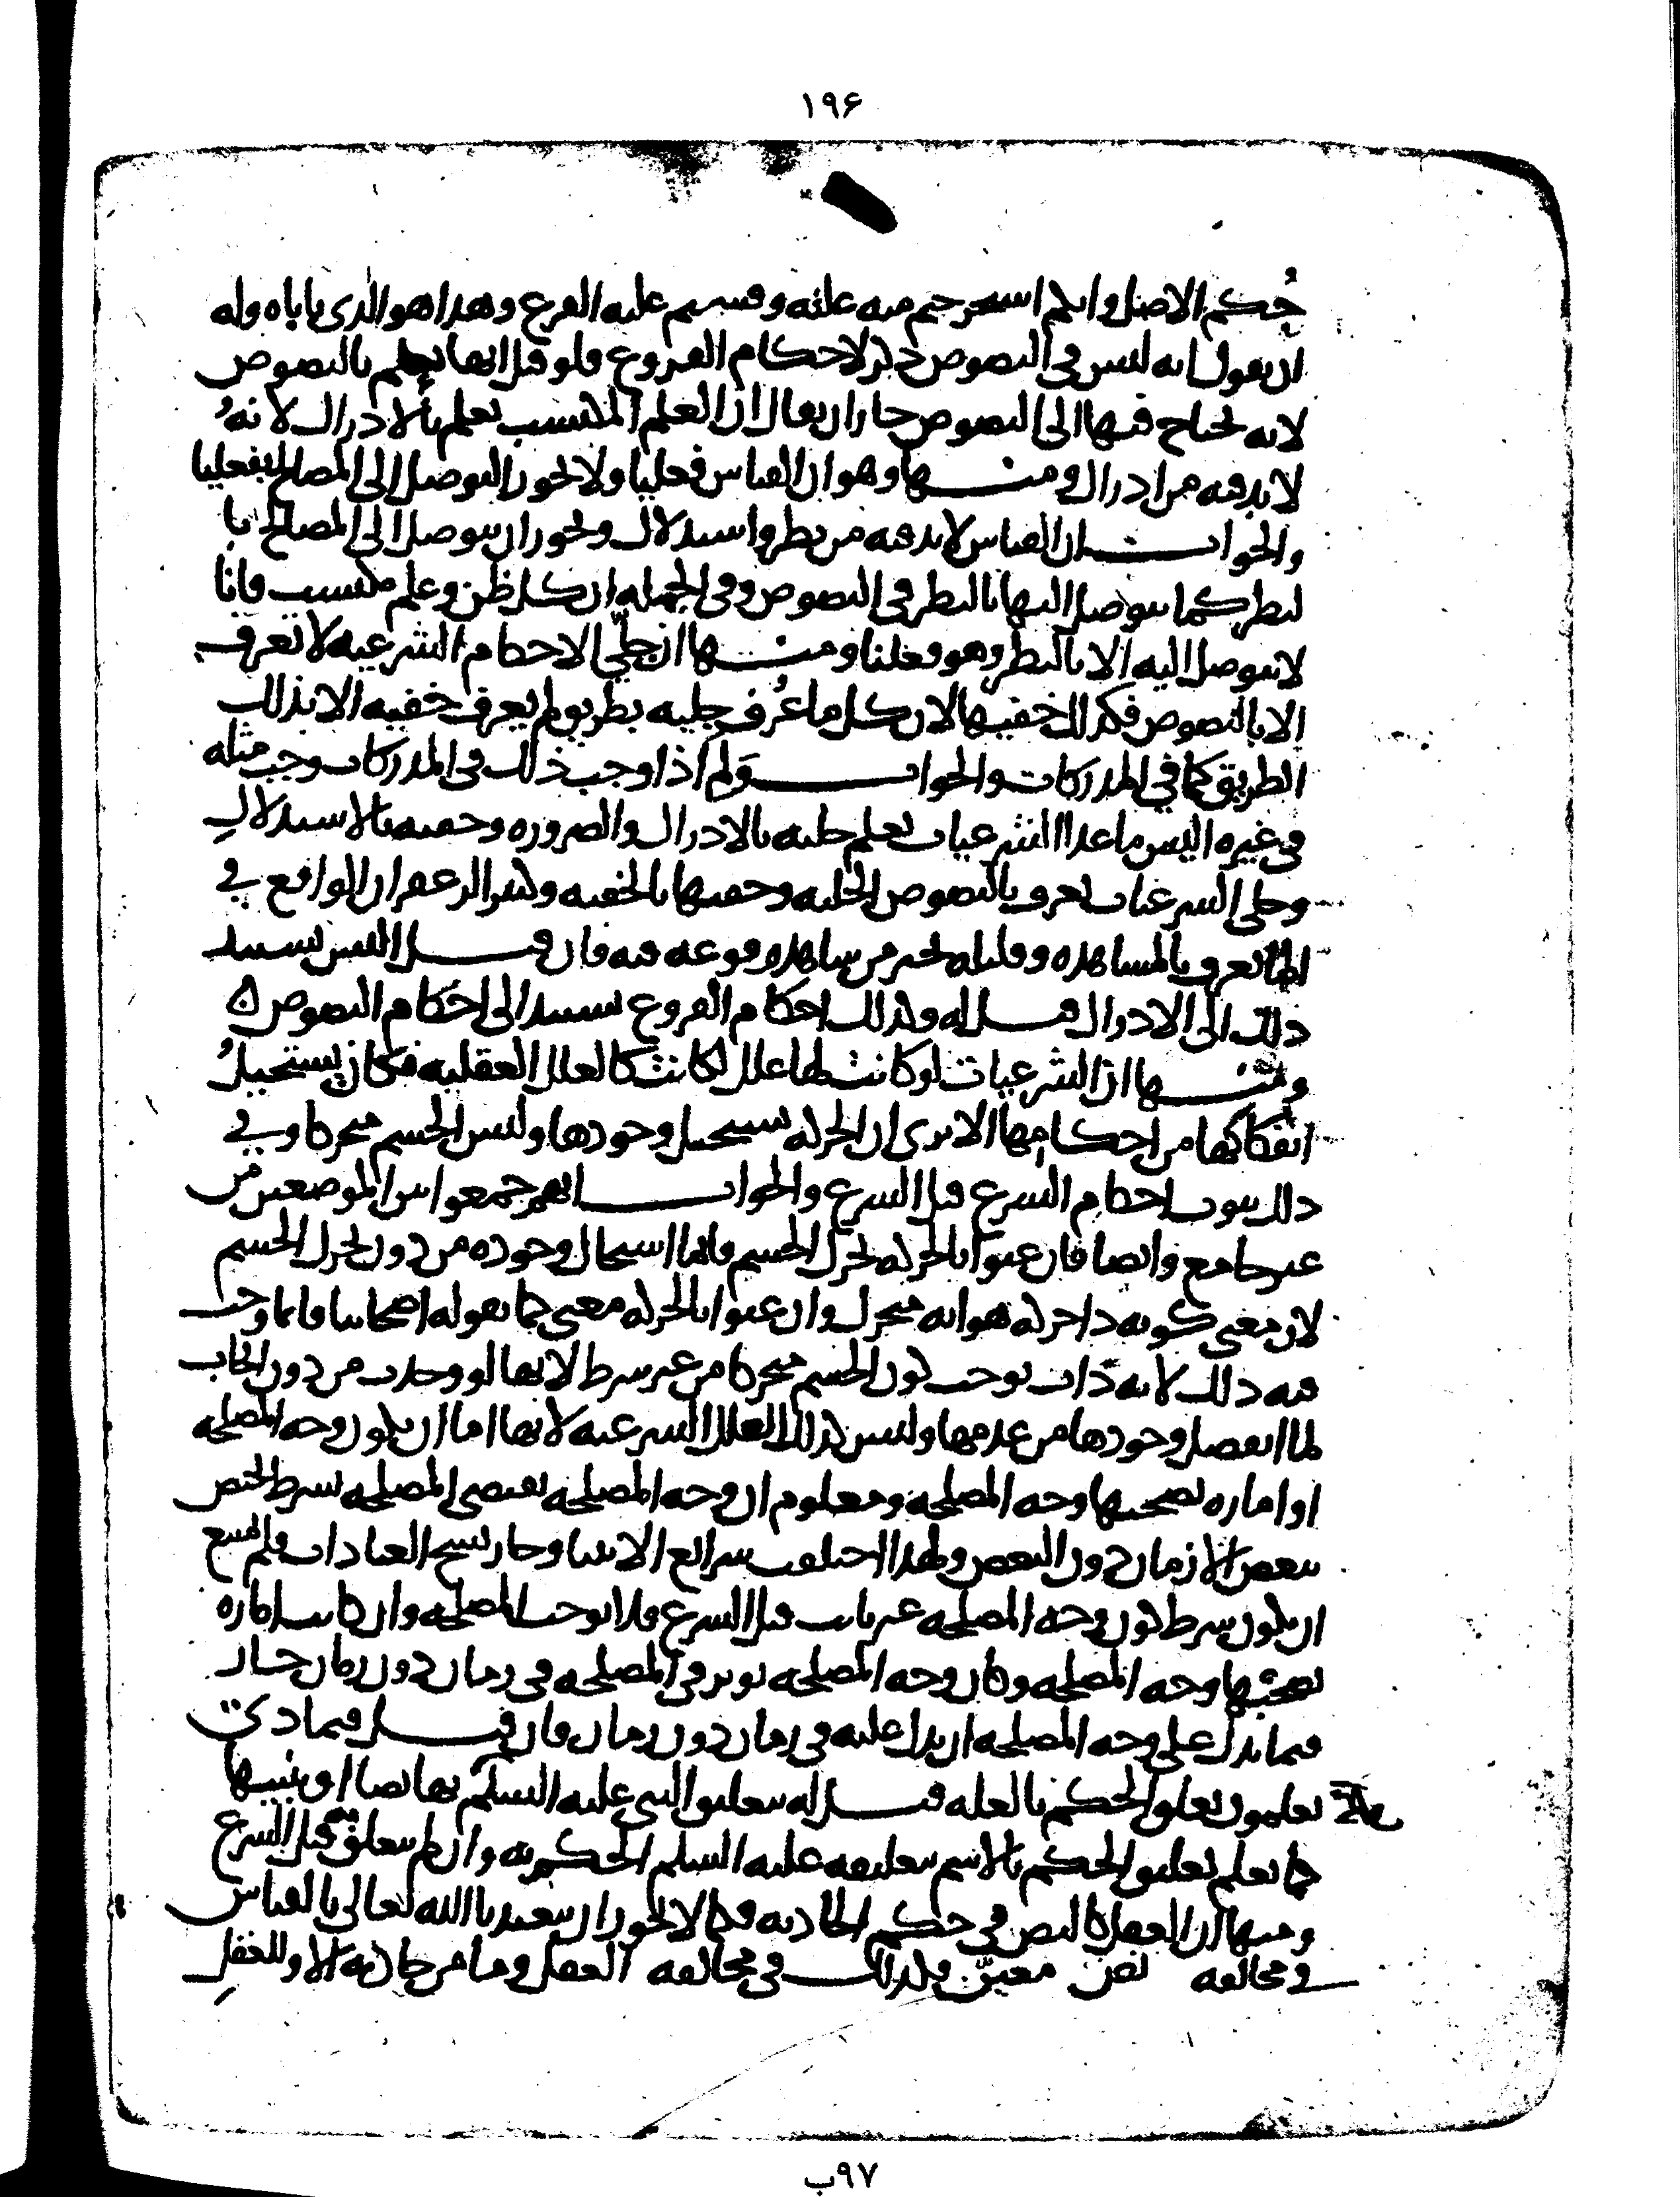 ١٩۶
حُكم الاصل وانكم استخرجتم منه علته وقستم عليه الفرع وهذا هو الذى ياباه وله
ان يقول انه ليس فى النصوص ذكر لاحكام الفروع فلو قيل انها تعلم بالنصوص
لانه يحتاج فيها الى النصوص جاز ان يقال ان العلم المكتسب يعلم بالادراك لانهُ
لا بد فيه من ادراك ومنها وهو ان القياس فعلنا ولا يجوز التوصل الى المصالح بفعلنا
والجواب ان القياس لا بد فيه من نظر واستدلال ويجوز ان يتوصل الى المصالح با
لنظر كما يتوصل اليها بالنظر فى النصوص وفى الجملة ان كل ظن وعلم مكتسب فانا
لا نتوصل اليه الا بالنظر وهو فعلنا ومنها ان جلىّ الاحكام الشرعية لا تعرف
الا بالنصوص فكذلك خفيها لان كل ما عُرف جليه بطريق لم يعرف خفيه الا بذلك
الطريق كما في المدركات والجواب وَلم اذا وجب ذلك فى المدركات وجب مثله
فى غيره اليس ما عدا الشرعيات يعلم جليه بالادراك والضرورة وخفيه بالاستدلالِ
وجلى الشرعيات تعرف بالنصوص الجلية وخفيها بالخفية وكثير الزعفران الواقع في
الما يعرف بالمشاهدة وقليله بخبر من شاهد وقوعه فيه فان قيل اليس يستند
ذلك الى الادراك قيل له وكذلك احكام الفروع تستند الى احكام النصوص ن
ومنها ان الشرعيات لو كانت لها علل لكانت كالعلل العقلية فكان يستحيلُ
انفكاكها من احكامها الا ترى ان الحركة يستحيل وجودها وليس الجسم متحركا وفي
ذلك ثبوت احكام الشرع قبل الشرع والجواب انهم جمعوا بين الموضعين من
غير جامع وايضا فان عنوا بالحركة تحرك الجسم فانما استحال وجوده من دون تحرك الجسم
لان معنى كونه ذا حركة هو انه متحرك وان عنوا بالحركة معنى كما يقوله اصحابنا فانما وجب
فيه ذلك لانه ذات توجب كون الجسم متحركا من غير شرط لانها لو وجدت من دون ايجاب
لما انفصل وجودها من عدمها وليس كذلك العلل الشرعية لانها اما ان يكون وجه المصلحة
او امارة يصحبها وجه المصلحة ومعلوم ان وجه المصلحة يقتضى المصلحة بشرط يختص
ببعض الازمان دون البعض ولهذا اختلفت شرائع الانبيا وجاز نسخ العبادات فلم يمتنع
ان يكون شرط كون وجه المصلحة غير ثابت قبل الشرع فلا توجب المصلحة وان كانت امارة
يصحبها وجه المصلحة وكان وجه المصلحة يوثر فى المصلحة فى زمان دون زمان جاز
فيما يدل على وجه المصلحة ان يدل عليه فى زمان دون زمان فان قيل فبماذى
تعلمون تعلق الحكم بالعلة قيل له بتعليق النبى عليه السلم بها نصا او تنبيها
كما نعلم تعليق الحكم بالاسم بتعليقه عليه السلم الحكم به وان لم يتعلق به قبل الشرع
ومنها ان العقل كالنص فى حكم الحادثة فكما لا يجوز ان يتعبد نا الله تعالى بالقياس
فى مخالفة نص معيّن فكذلك فى مخالفة العقل وما من حادثة الا وللعقلِ
٩٧ب